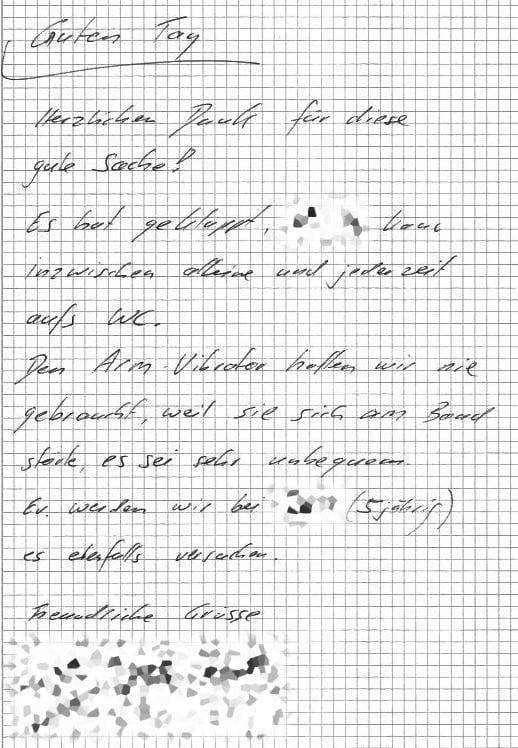 Guten Tag
Herzlichen Dank für diese
gute Sache!
Es hat geklappt, kann
inzwischen alleine und jederzeit
aufs WC.
Den Arm-Vibrator hatten wir nie
gebraucht, weil sie sich am Band
störte, es sei sehr unbequem.
Ev. werden wir bei (5 jährig)
es ebenfalls versuchen.
Freundliche Grüsse